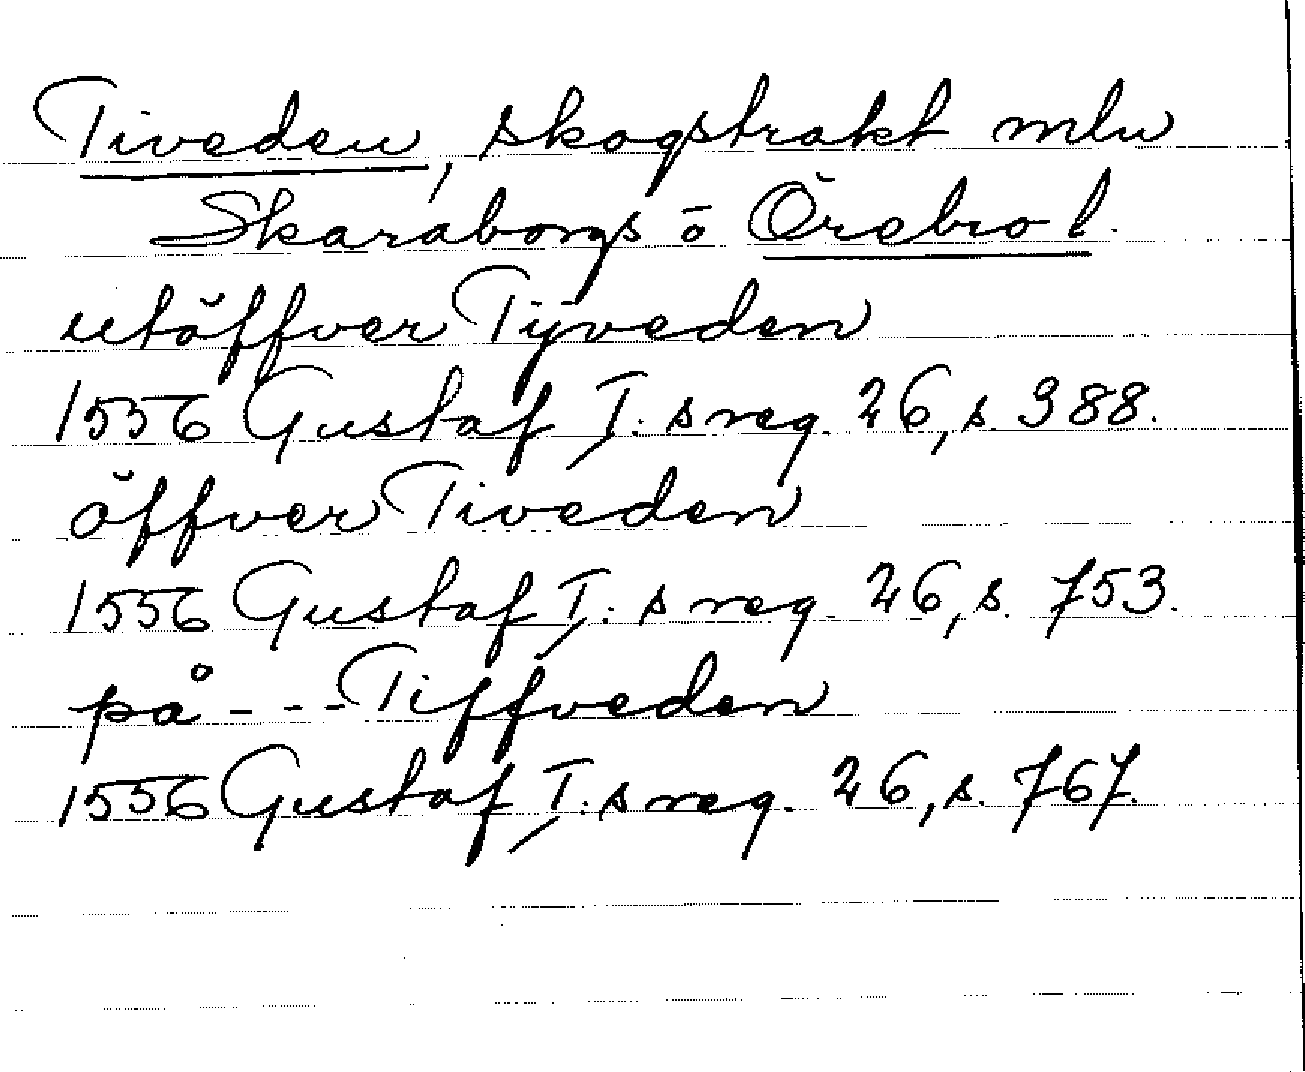 Tiveden, skogstrakt mln
Skaraborgs o Örebro l.
utöffver Tijveden
1556 Gustaf I:s reg. 26, s. 388.
öffver Tiveden
1556 Gustaf I:s reg. 26, s. 753.
på --- Tiffveden
1556 Gustaf I:s reg. 26, s. 767.